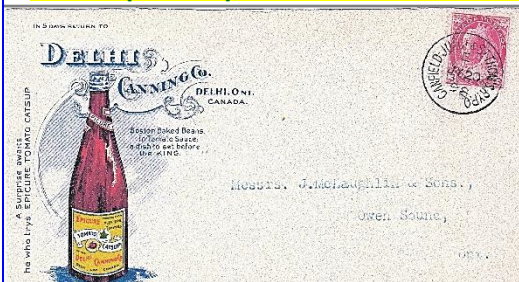 IN 5 DAYS RETURN TO
DELHI
CANNING CO.
DELHI, ONT.
CANADA.
Boston Baked Beans,
in Tomato Sauce,
a dish to set before
the KING.
A Surprise awaits
he who trys EPICURE TOMATO CATSUP
EPICURE
TOMATO CATSUP
DELHI CANNING CO.
Messrs. J.McLaughlin & Sons.,
Owen Soune,
Ont.